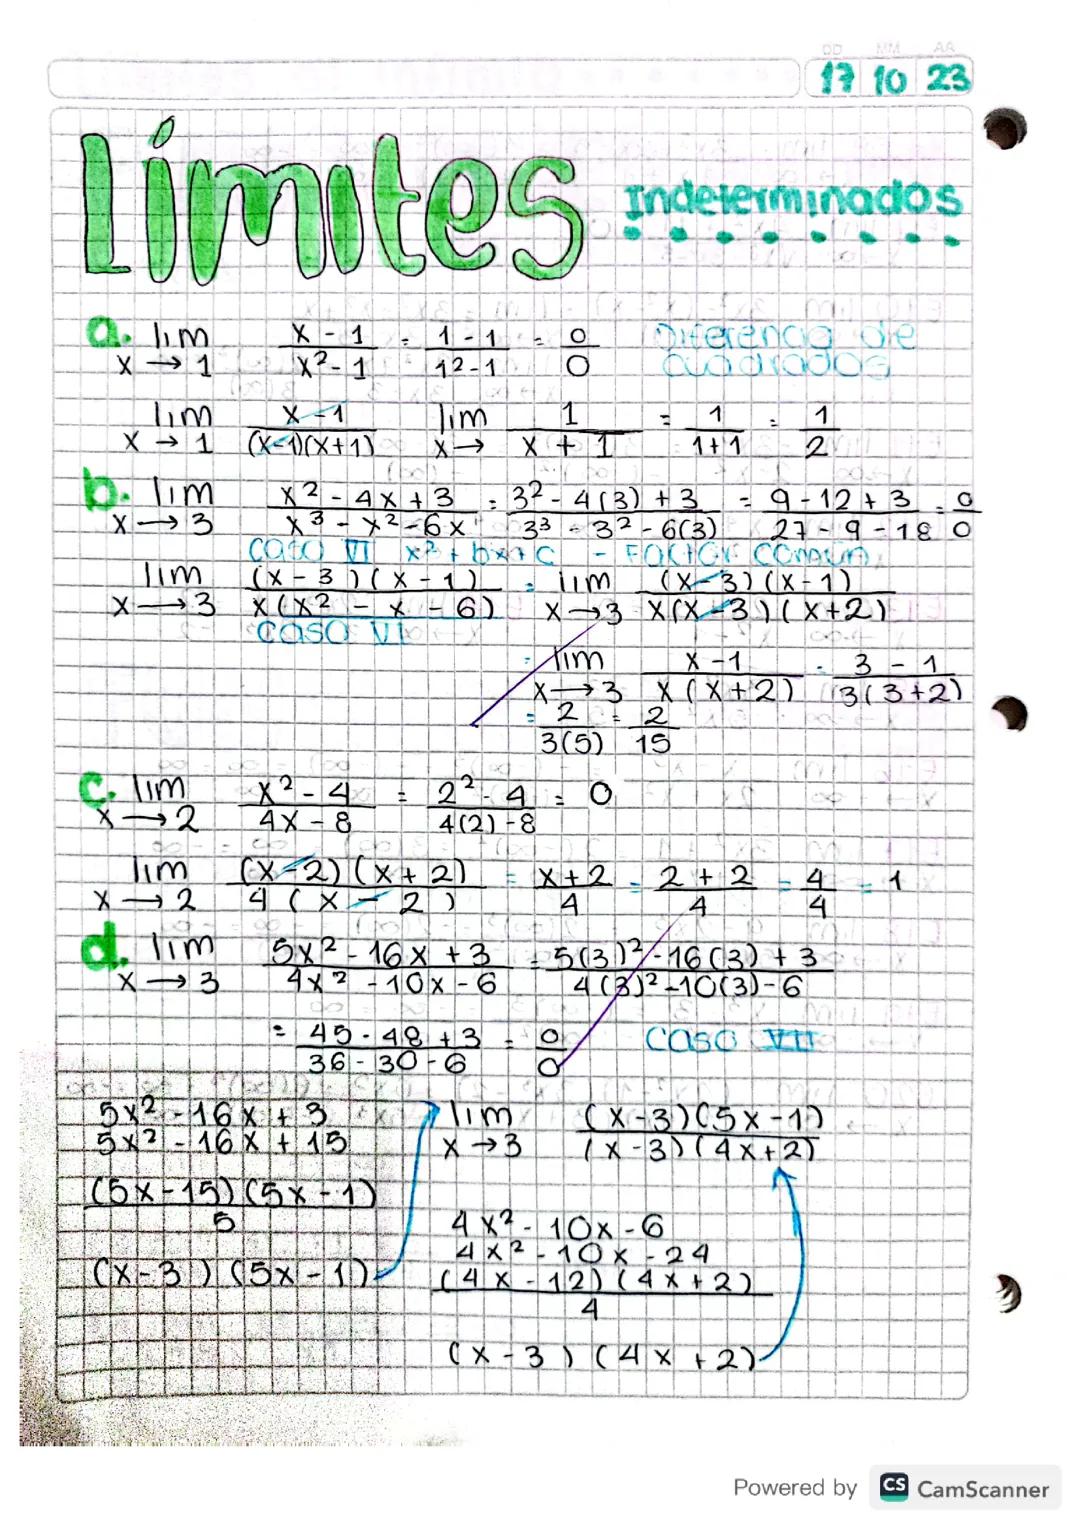 DD MM AA
17 10 23
Límites
Indeterminados
a. lim x→1 x - 1 / x² - 1 = 1 - 1 / 1² - 1 = 0 / 0 Diferencia de cuadrados
lim x→1 x - 1 / (x-1)(x+1) lim x→ 1 / x + 1 = 1 / 1+1 = 1 / 2
b. lim x→3 x² - 4x + 3 / x³ - x² - 6x = 3² - 4(3) + 3 / 3³ - 3² - 6(3) = 9 - 12 + 3 / 27 - 9 - 18 = 0 / 0
caso VI x² + bx + c - Factor común
lim x→3 (x - 3)(x - 1) / x(x² - x - 6) = lim x→3 (x-3)(x-1) / x(x-3)(x+2)
caso VI
= lim x→3 x - 1 / x(x+2) = 3 - 1 / 3(3+2)
= 2 / 3(5) = 2 / 15
c. lim x→2 x² - 4 / 4x - 8 = 2² - 4 / 4(2) - 8 = 0
lim x→2 (x-2)(x+2) / 4(x - 2) = x+2 / 4 = 2 + 2 / 4 = 4 / 4 = 1
d. lim x→3 5x² - 16x + 3 / 4x² - 10x - 6 = 5(3)² - 16(3) + 3 / 4(3)² - 10(3) - 6
= 45 - 48 + 3 / 36 - 30 - 6 = 0 / 0 Caso VII
5x² - 16x + 3
5x² - 16x + 15
(5x - 15)(5x - 1) / 5
(x - 3)(5x - 1)
lim x→3 (x-3)(5x-1) / (x-3)(4x+2)
4x² - 10x - 6
4x² - 10x - 24
(4x - 12)(4x + 2) / 4
(x - 3)(4x + 2)
Powered by CS CamScanner